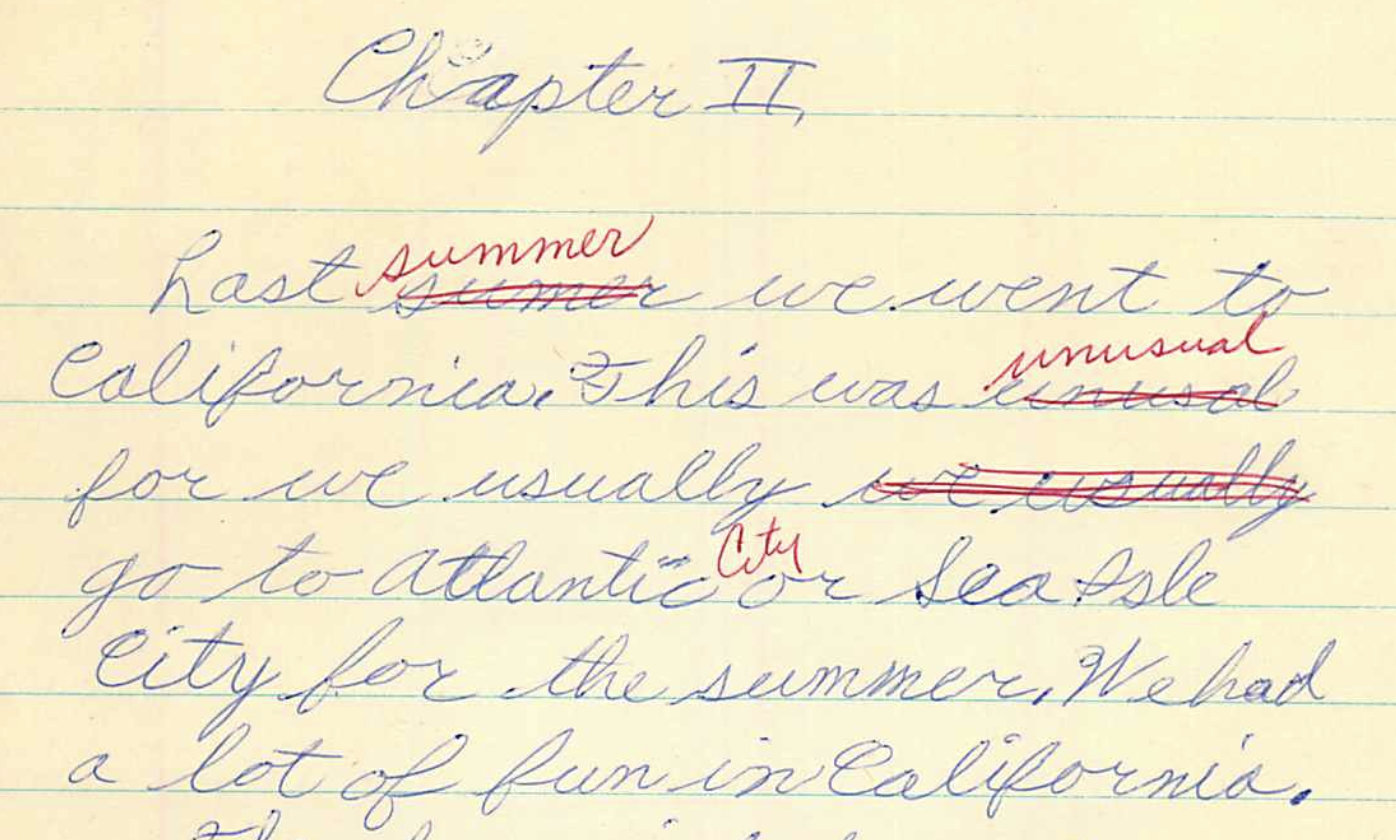 Chapter II,
summer
Last sumer we went to
unusual
California. This was unusal
for we usually we usually
City
go to Atlantic or Sea Isle
City for the summer. We had
a lot of fun in California.